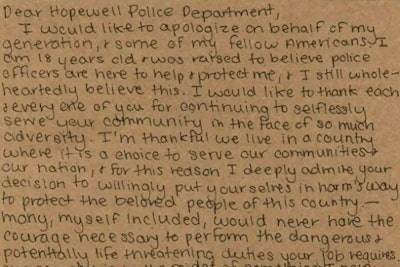 Dear Hopewell Police Department,
I would like to apologize on behalf of my
generation, & some of my fellow Americans. I
am 18 years old & was raised to believe police
officers are here to help & protect me, & I still whole-
heartedly believe this. I would like to thank each
& every one of you for continuing to selflessly
serve your community in the face of so much
adversity. I'm thankful we live in a country
where it is a choice to serve our communities &
our nation, & for this reason I deeply admire your
decision to willingly put yourselves in harm's way
to protect the beloved people of this country —
many, myself included, would never have the
courage necessary to perform the dangerous &
potentially life threatening duties your job requires.